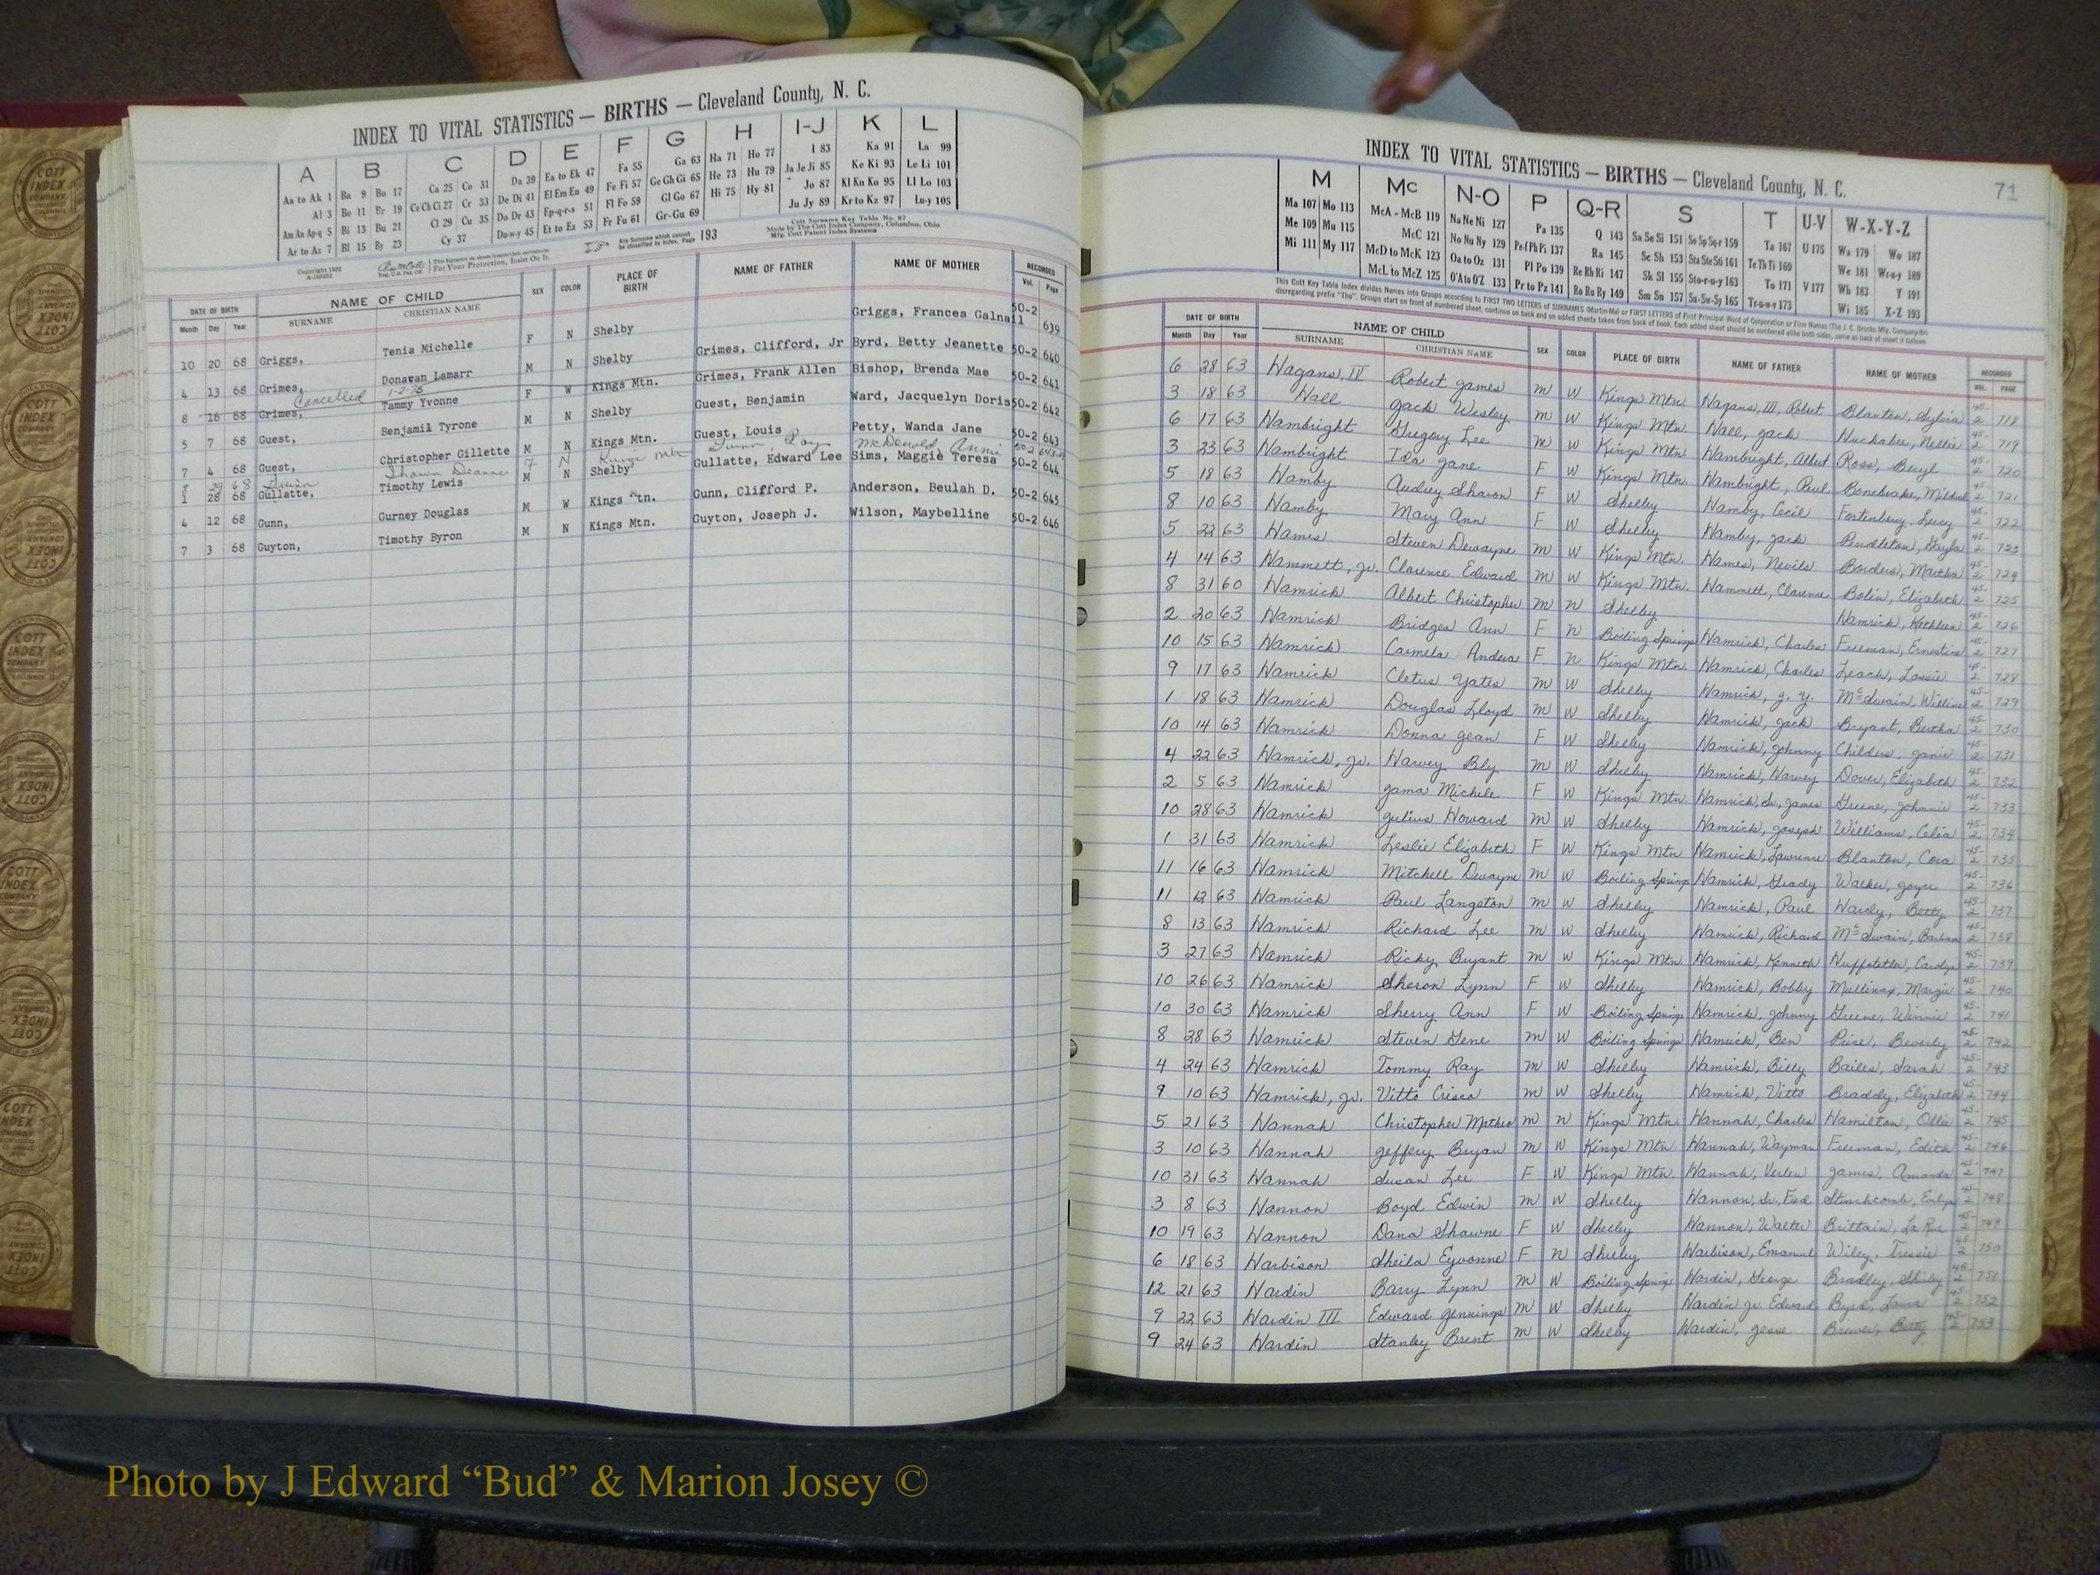 INDEX TO VITAL STATISTICS — BIRTHS — Cleveland County, N. C.
A B C D E F G H I-J K L
Aa to Ak 1 Ba 9 Bo 17 Ca 25 Co 31 Da 39 Ea to Ek 47 Fa 55 Ga 63 Ha 71 Ho 77 I 83 Ka 91 La 99
Al 3 Be 11 Br 19 Ce Ch Ci 27 Cr 33 De Di 41 El Em En 49 Fe Fi 57 Ge Gh Gi 65 He 73 Hu 79 Ja Je Ji 85 Ke Ki 93 Le Li 101
Am An Ap-q 5 Bi 13 Bu 21 Cl 29 Cu 35 Do Dr 43 Ep-q-r-s 51 Fl Fo 59 Gl Go 67 Hi 75 Hy 81 Jo 87 Kl Kn Ko 95 Ll Lo 103
Ar to Az 7 Bl 15 By 23 Cy 37 Du-w-y 45 Et to Ez 53 Fr Fu 61 Gr-Gu 69 Ju Jy 89 Kr to Kz 97 Lu-y 105
Any Surname which cannot be classified by Index, Page 193
Cott Surname Key Table No. 97
Made by The Cott Index Company, Columbus, Ohio
Mfg. Cott Patent Index Systems
For Your Protection, Insist On It.
DATE OF BIRTH NAME OF CHILD SEX COLOR PLACE OF BIRTH NAME OF FATHER NAME OF MOTHER RECORDED
Month Day Year SURNAME CHRISTIAN NAME Vol. Page
10 20 68 Griggs, Tenia Michelle F N Shelby Griggs, Frances Galnail 50-2 639
4 13 68 Grimes, Donavan Lamarr M N Shelby Grimes, Clifford, Jr Byrd, Betty Jeanette 50-2 640
Cancelled 1-2-75
8 16 68 Grimes, Tammy Yvonne F W Kings Mtn. Grimes, Frank Allen Bishop, Brenda Mae 50-2 641
5 7 68 Guest, Benjamil Tyrone M N Shelby Guest, Benjamin Ward, Jacquelyn Doris 50-2 642
7 4 68 Guest, Christopher Gillette M N Kings Mtn. Guest, Louis Petty, Wanda Jane 50-2 643
29 68 Shawn Deanne F N Kings Mtn
1 28 68 Gullatte, Timothy Lewis M N Shelby Gullatte, Edward Lee Sims, Maggie Teresa 50-2 644
4 12 68 Gunn, Gurney Douglas M W Kings Mtn. Gunn, Clifford P. Anderson, Beulah D. 50-2 645
7 3 68 Guyton, Timothy Byron M N Kings Mtn. Guyton, Joseph J. Wilson, Maybelline 50-2 646
INDEX TO VITAL STATISTICS — BIRTHS — Cleveland County, N. C. 71
M Mc N-O P Q-R S T U-V W-X-Y-Z
Ma 107 Mo 113 McA - McB 119 Na Ne Ni 127 Pa 135 Q 143 Sa Se Si 151 So Sp Sq-r 159 Ta 167 U 175 Wa 179 Wo 187
Me 109 Mu 115 McC 121 No Nu Ny 129 Pe-f Ph Pi 137 Ra 145 Sc Sh 153 Sta Ste Sti 161 Te Th Ti 169 We 181 Wr-u-y 189
Mi 111 My 117 McD to McK 123 Oa to Oz 131 Pl Po 139 Re Rh Ri 147 Sk Sl 155 Sto-r-u-y 163 To 171 V 177 Wh 183 Y 191
McL to McZ 125 O'A to O'Z 133 Pr to Pz 141 Ro Ru Ry 149 Sm Sn 157 Su-Sw-Sy 165 Tr-u-w-y 173 Wi 185 X-Z 193
This Cott Key Table Index divides Names into Groups according to FIRST TWO LETTERS of SURNAMES (Martin-Ma) or FIRST LETTERS of First Principal Word of Corporation or Firm Names
disregarding prefix "The". Groups start on front of numbered sheet, continue on back and on added sheets taken from back of book. Each added sheet should be numbered alike both sides, same as back of sheet it follows
DATE OF BIRTH NAME OF CHILD SEX COLOR PLACE OF BIRTH NAME OF FATHER NAME OF MOTHER RECORDED
Month Day Year SURNAME CHRISTIAN NAME VOL. PAGE
6 28 63 Hagans, III Robert James M W Kings Mtn. Hagans, III, Robert Blanton, Sylvia 45-2 718
3 18 63 Hall Jack Wesley M W Kings Mtn. Hall, Jack Huckabee, Nellie 45-2 719
6 17 63 Hambright Gregory Lee M W Kings Mtn. Hambright, Albert Ross, Beryl 45-2 720
3 23 63 Hambright Ida Jane F W Kings Mtn. Hambright, Paul Bonebrake, Mildred 45-2 721
5 18 63 Hamby Audrey Sharon F W Shelby Hamby, Cecil Fortenberry, Lucy 45-2 722
8 10 63 Hamby Mary Ann F W Shelby Hamby, Jack Pendleton, Gayla 45-2 723
5 22 63 Hames Steven Dewayne M W Kings Mtn. Hames, Nevils Borders, Martha 45-2 724
4 14 63 Hammett, Jr. Clarence Edward M W Kings Mtn. Hammett, Clarence Bolin, Elizabeth 45-2 725
8 31 60 Hamrick Albert Christopher M N Shelby Hamrick, Kathleen 45-2 726
2 20 63 Hamrick Bridges Ann F N Boiling Springs Hamrick, Charles Freeman, Ernestine 45-2 727
10 15 63 Hamrick Carmela Andera F N Kings Mtn. Hamrick, Charles Leach, Lassie 45-2 728
9 17 63 Hamrick Cletus Yates M W Shelby Hamrick, J. Y. McSwain, Willene 45-2 729
1 18 63 Hamrick Douglas Lloyd M W Shelby Hamrick, Jack Bryant, Bertha 45-2 730
10 14 63 Hamrick Donna Jean F W Shelby Hamrick, Johnny Childers, Janie 45-2 731
4 22 63 Hamrick, Jr. Harvey Bly M W Shelby Hamrick, Harvey Dover, Elizabeth 45-2 732
2 5 63 Hamrick Jama Michele F W Kings Mtn. Hamrick, Sr., James Greene, Johnnie 45-2 733
10 28 63 Hamrick Julius Howard M W Shelby Hamrick, Joseph Williams, Celia 45-2 734
1 31 63 Hamrick Leslie Elizabeth F W Kings Mtn Hamrick, Lawrence Blanton, Cora 45-2 735
11 16 63 Hamrick Mitchell Dwayne M W Boiling Springs Hamrick, Grady Walker, Joyce 45-2 736
11 12 63 Hamrick Paul Langston M W Shelby Hamrick, Paul Hardy, Betty 45-2 737
8 13 63 Hamrick Richard Lee M W Shelby Hamrick, Richard McSwain, Barbara 45-2 738
3 27 63 Hamrick Ricky Bryant M W Kings Mtn. Hamrick, Kenneth Huffstetler, Carolyn 45-2 739
10 26 63 Hamrick Sharon Lynn F W Shelby Hamrick, Bobby Mullinax, Margie 45-2 740
10 30 63 Hamrick Sherry Ann F W Boiling Springs Hamrick, Johnny Greene, Winnie 45-2 741
8 28 63 Hamrick Steven Gene M W Boiling Springs Hamrick, Ben Price, Beverly 45-2 742
4 24 63 Hamrick Tommy Ray M W Shelby Hamrick, Billy Bailes, Sarah 45-2 743
9 10 63 Hamrick, Jr. Vitto Crisco M W Shelby Hamrick, Vitto Braddy, Elizabeth 45-2 744
5 21 63 Hannah Christopher Mathew M N Kings Mtn. Hannah, Charles Hamilton, Ollie 45-2 745
3 10 63 Hannah Jeffery Bryan M W Kings Mtn. Hannah, Wayman Freeman, Edith 45-2 746
10 31 63 Hannah Susan Lee F W Kings Mtn. Hannah, Verlen James, Amanda 45-2 747
3 8 63 Hannon Boyd Edwin M W Shelby Hannon, Sr., Fred Stinchcomb, Evelyn 45-2 748
10 19 63 Hannon Dana Shawne F W Shelby Hannon, Walter Brittain, La Rue 45-2 749
6 18 63 Harbison Sheila Eyvonne F N Shelby Harbison, Emanuel Wiley, Tressie 45-2 750
12 21 63 Hardin Barry Lynn M W Boiling Springs Hardin, George Bradley, Shirley 45-2 751
9 22 63 Hardin III Edward Jennings M W Shelby Hardin Jr. Edward Byrd, Laura 45-2 752
9 24 63 Hardin Stanley Brent M W Shelby Hardin, Jesse Brewer, Betty 45-2 753
Photo by J Edward “Bud” & Marion Josey ©